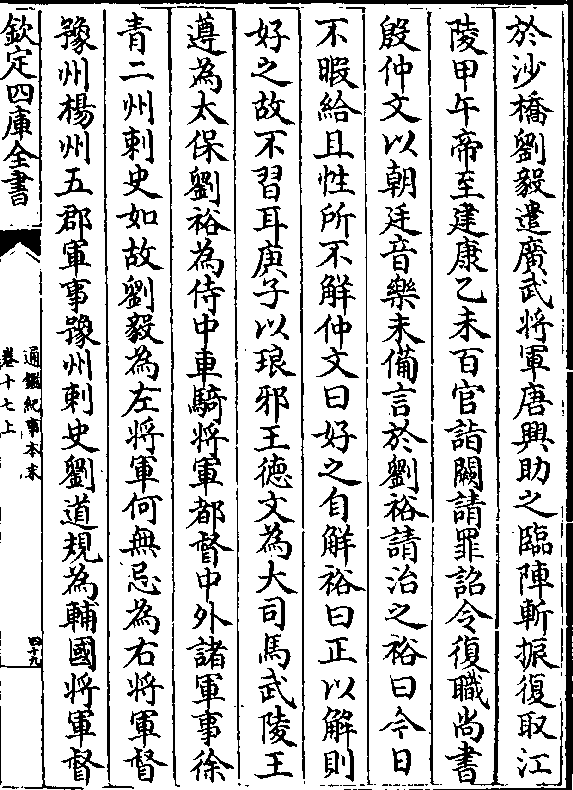 於沙橋劉毅遣廣武将軍唐興助之臨陣斬振復取江
陵甲午帝至建康乙未百官詣闕請罪詔令復職尚書
殷仲文以朝廷音樂未備言於劉裕請治之裕曰今日
不暇給且性所不解仲文曰好之自解裕曰正以解則
好之故不習耳庚子以琅邪王徳文為大司馬武陵王
遵為太保劉裕為侍中車騎将軍都督中外諸軍事徐
青二州刺史如故劉毅為左将軍何無忌為右将軍督
豫州楊州五郡軍事豫州刺史劉道規為輔國将軍督
欽定四庫全書
通鑑紀事本末
卷十七上
四十九